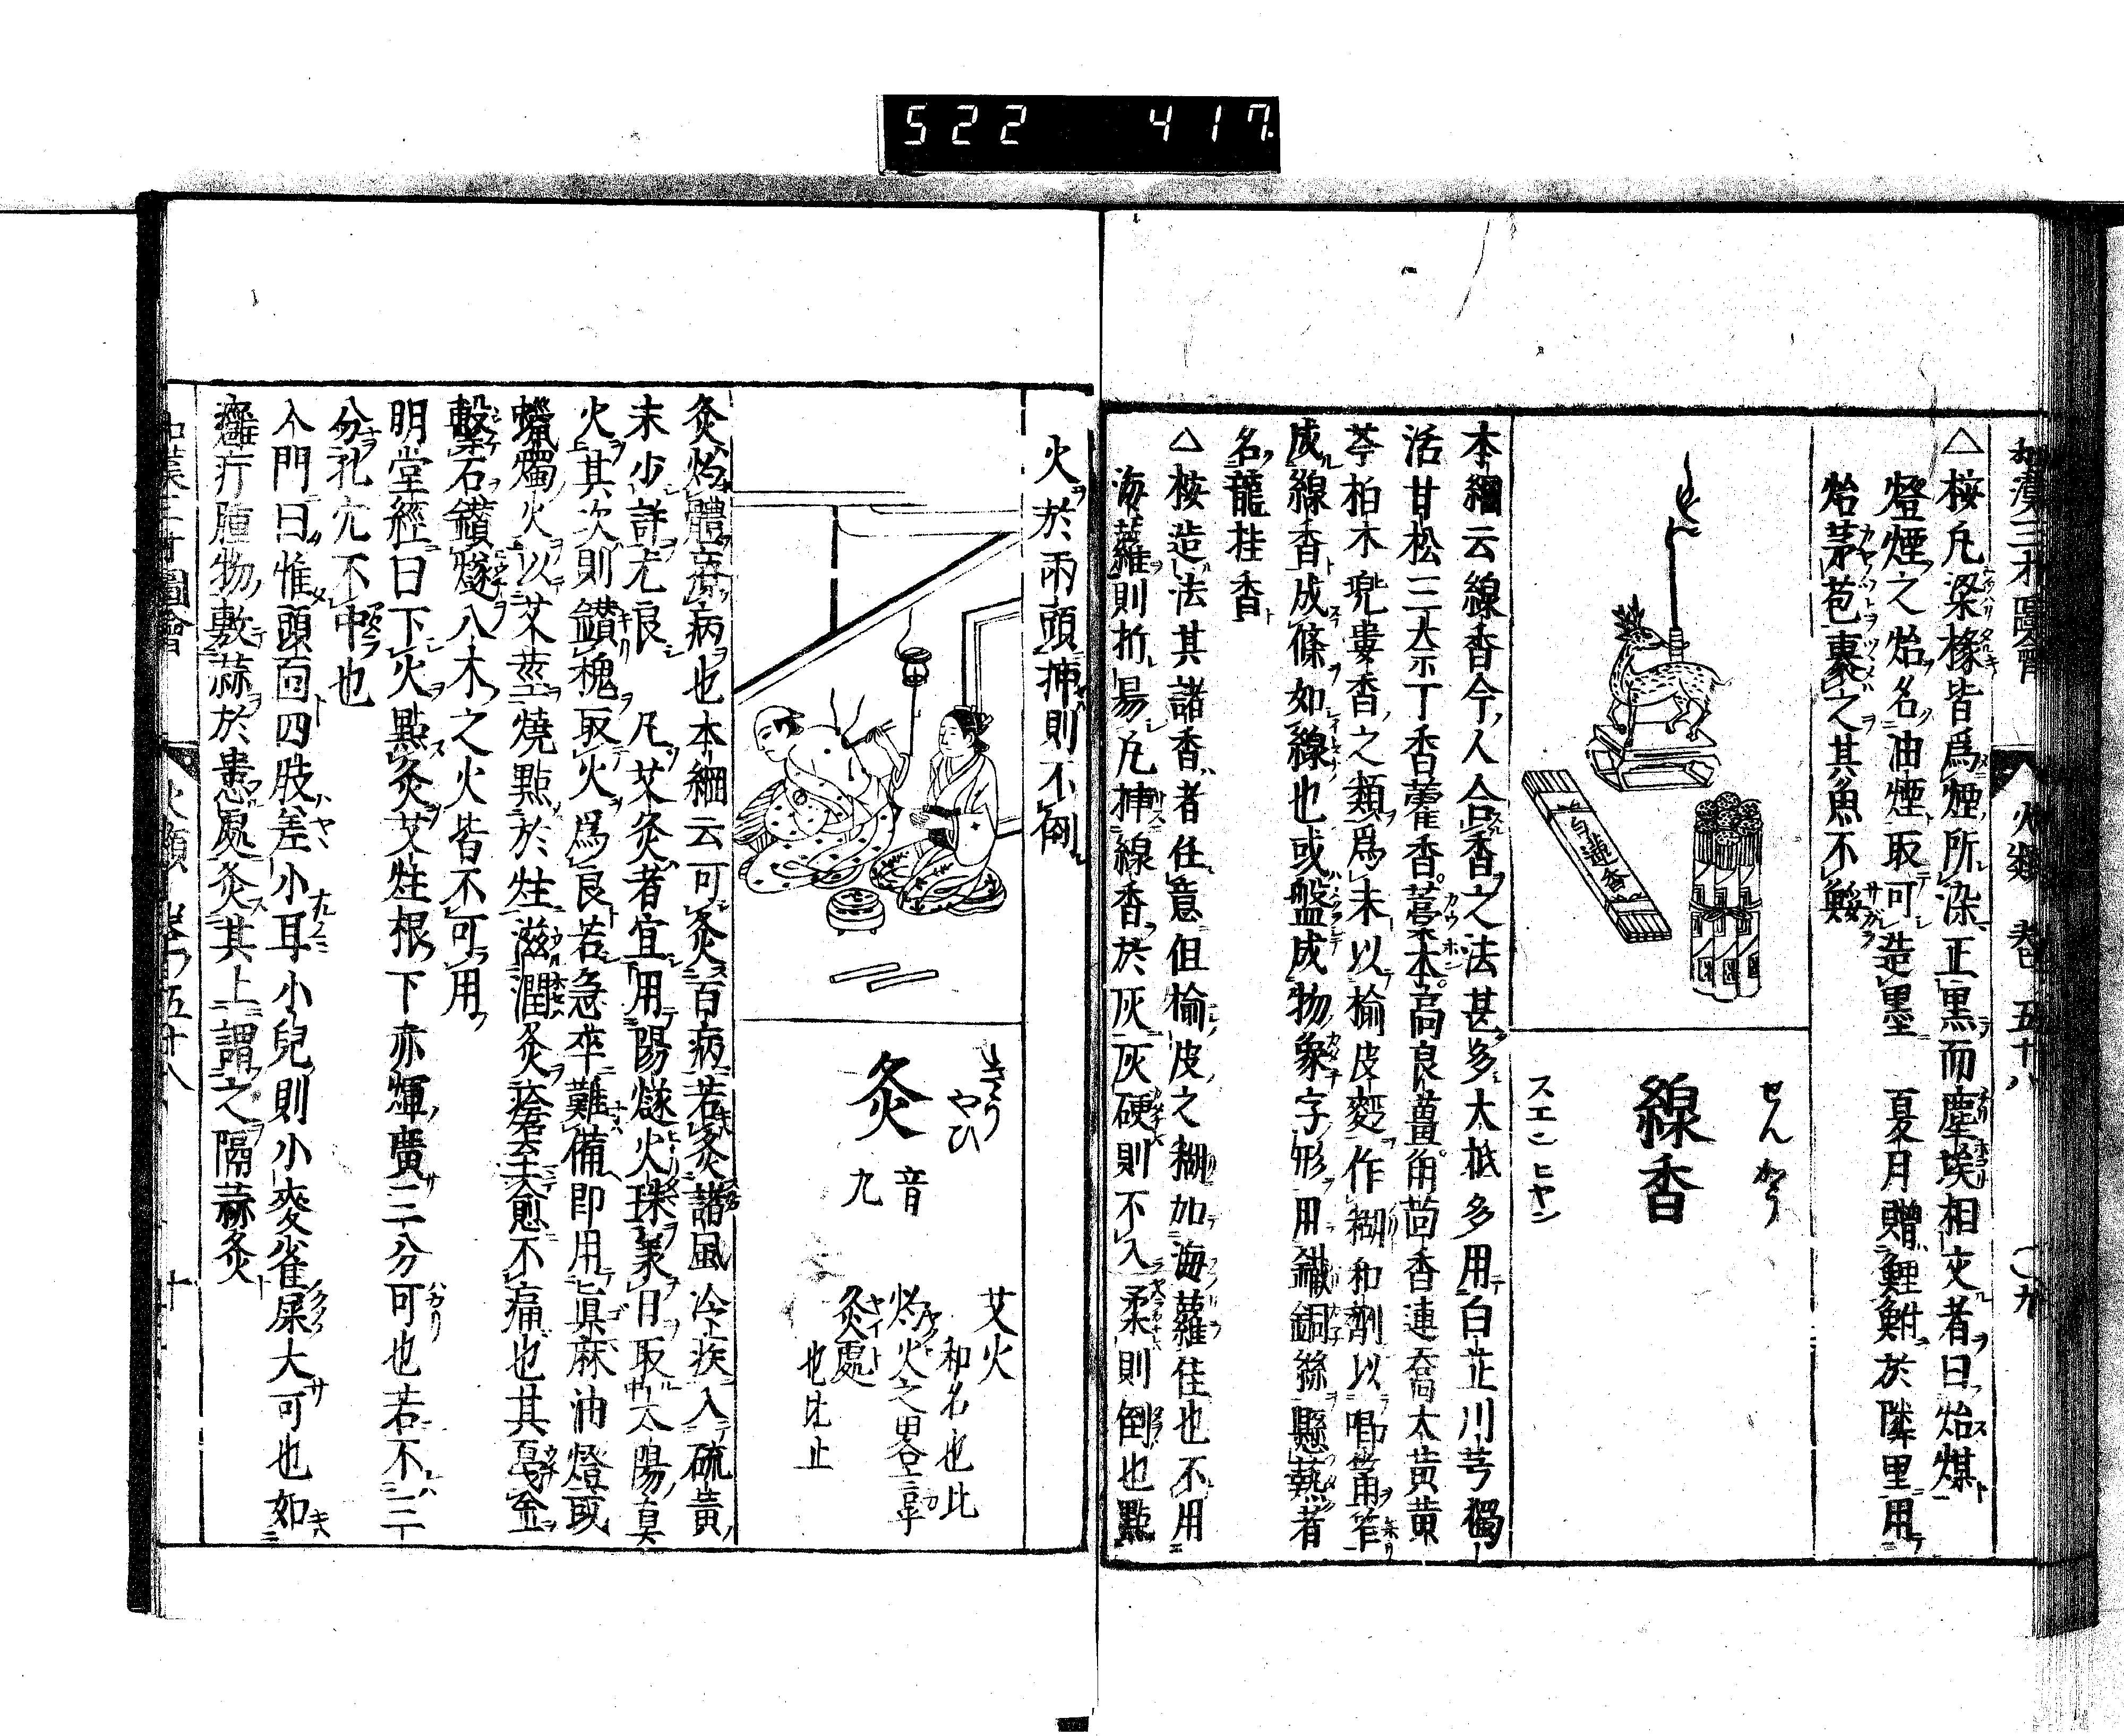 522 417
和漢三才圖會 火類 卷五十八 〇九
△桉凡梁椽皆爲煙所染正黒而塵埃相交者曰炲煤
燈煙之炲名油煙取可造墨 夏月贈鯉鮒於隣里用
炲茅苞裏之其魚不鯘
せんかう
線香
スエン ヒヤン
白蓮香
本綱云線香今人合香之法甚多大抵多用白芷川芎獨
活甘松三柰丁香藿香藁本高良薑角茴香連喬大黄黄
芩柏木兜婁香之類爲末以榆皮麪作糊和劑以唧筩笮
成線香成條如線也或盤成物象字形用鐵銅絲懸爇者
名龍桂香
△桉造法其諸香者任意但榆皮之糊加海蘿佳也不用
海蘿則折昜凡揷線香於灰灰硬則不入柔則倒也點
火於兩頭揷則不倒
きう
やひ
灸
音
九
艾火
和名也比
火之畧訓
灸處
也比止
灸灼體療病也本綱云可灸百病若灸諸風冷疾入硫黄
末少許尤良 凡艾灸者宜用陽燧火珠承日取太陽真
火其次則鑚槐取火爲良若急卒難備即用眞麻油燈或
蠟燭火以艾莖燒點於炷滋潤灸瘡至愈不痛也其戛金
擊石鑚燧八木之火皆不可用
明堂經曰下火點灸艾炷根下赤輝廣三分可也若不三
分孔穴不中也
入門曰惟頭面四肢差小耳小兒則小麥雀屎大可也如
癰疔腫物敷蒜於患處灸其上謂之隔蒜灸
和漢三才圖會 火類 卷五十八 十